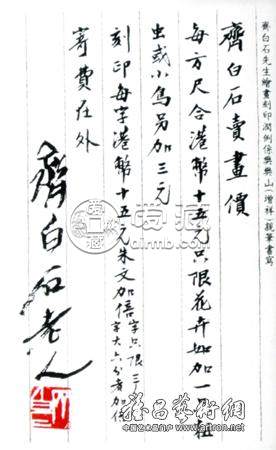 齊白石先生繪畫刻印潤例係樊樊山（增祥）親筆書寫
齊白石賣畫價
每方尺合港幣十五元只限花卉如加一
虫或小鳥另加三元
刻印每字港幣十五元朱文加倍字只限三
字大六分者加倍
寄費在外
齊白石老人
爱藏
airmb.com
雅昌藝術網
中国艺术品门户 www.artron.net